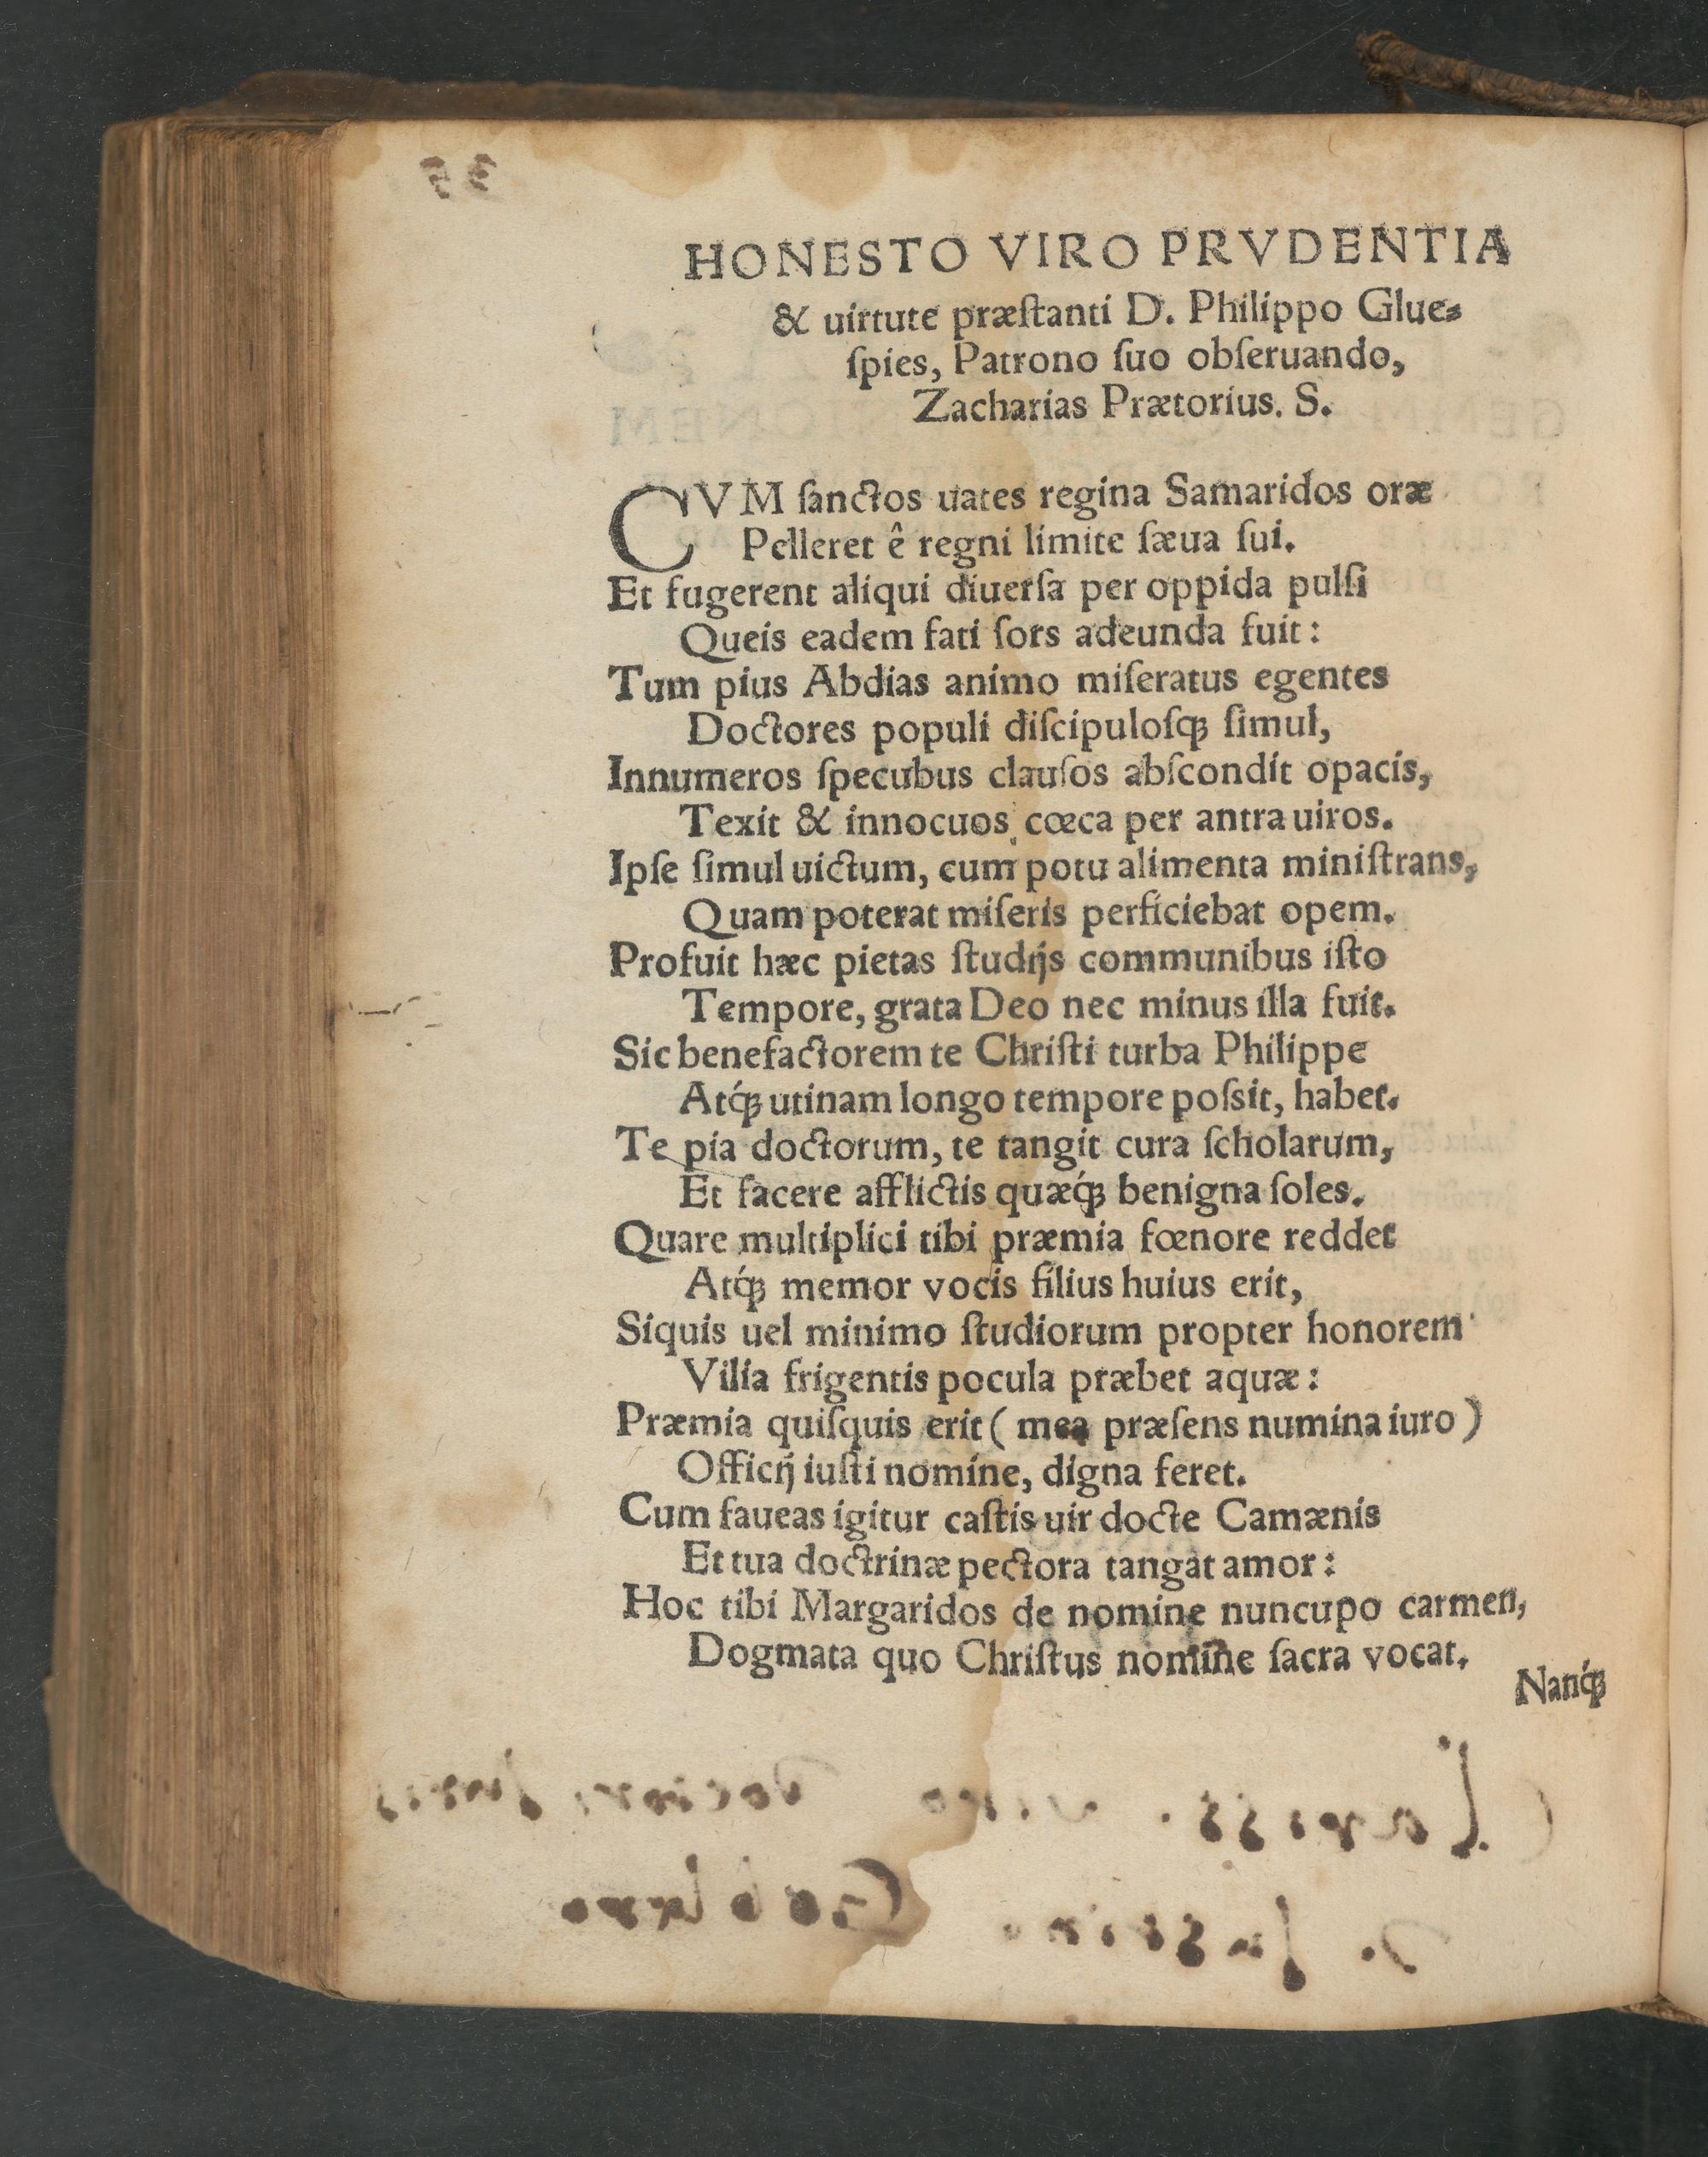 HONESTO VIRO PRVDENTIA
& uirtute præſtanti D. Philippo Glue⸗
ſpies, Patrono ſuo obſeruando,
Zacharias Prætorius. S.
CVM ſanctos uates regina Samaridos oræ
Pelleret ê regni limite ſæua ſui.
Et fugerent aliqui diuerſa per oppida pulſi
Queis eadem fati ſors adeunda fuit:
Tum pius Abdias animo miſeratus egentes
Doctores populi diſcipuloſq́ꝫ ſimul,
Innumeros ſpecubus clauſos abſcondit opacis,
Texit & innocuos cœca per antra uiros.
Ipſe ſimul uictum, cum potu alimenta miniſtrans,
Quam poterat miſeris perficiebat opem.
Profuit hæc pietas ſtudijs communibus iſto
Tempore, grata Deo nec minus illa fuit.
Sic benefactorem te Chriſti turba Philippe
Atq́ꝫ utinam longo tempore poſsit, habet.
Te pia doctorum, te tangit cura ſcholarum,
Et facere afflictis quæq́ꝫ benigna ſoles.
Quare multiplici tibi præmia fœnore reddet
Atq́ꝫ memor vocis filius huius erit,
Siquis uel minimo ſtudiorum propter honorem
Vilia frigentis pocula præbet aquæ:
Præmia quiſquis erit (mea præſens numina iuro)
Officij iuſti nomine, digna feret.
Cum faueas igitur caſtis uir docte Camænis
Et tua doctrinæ pectora tangat amor:
Hoc tibi Margaridos de nomine nuncupo carmen,
Dogmata quo Chriſtus nomine ſacra vocat.
Nanq́ꝫ